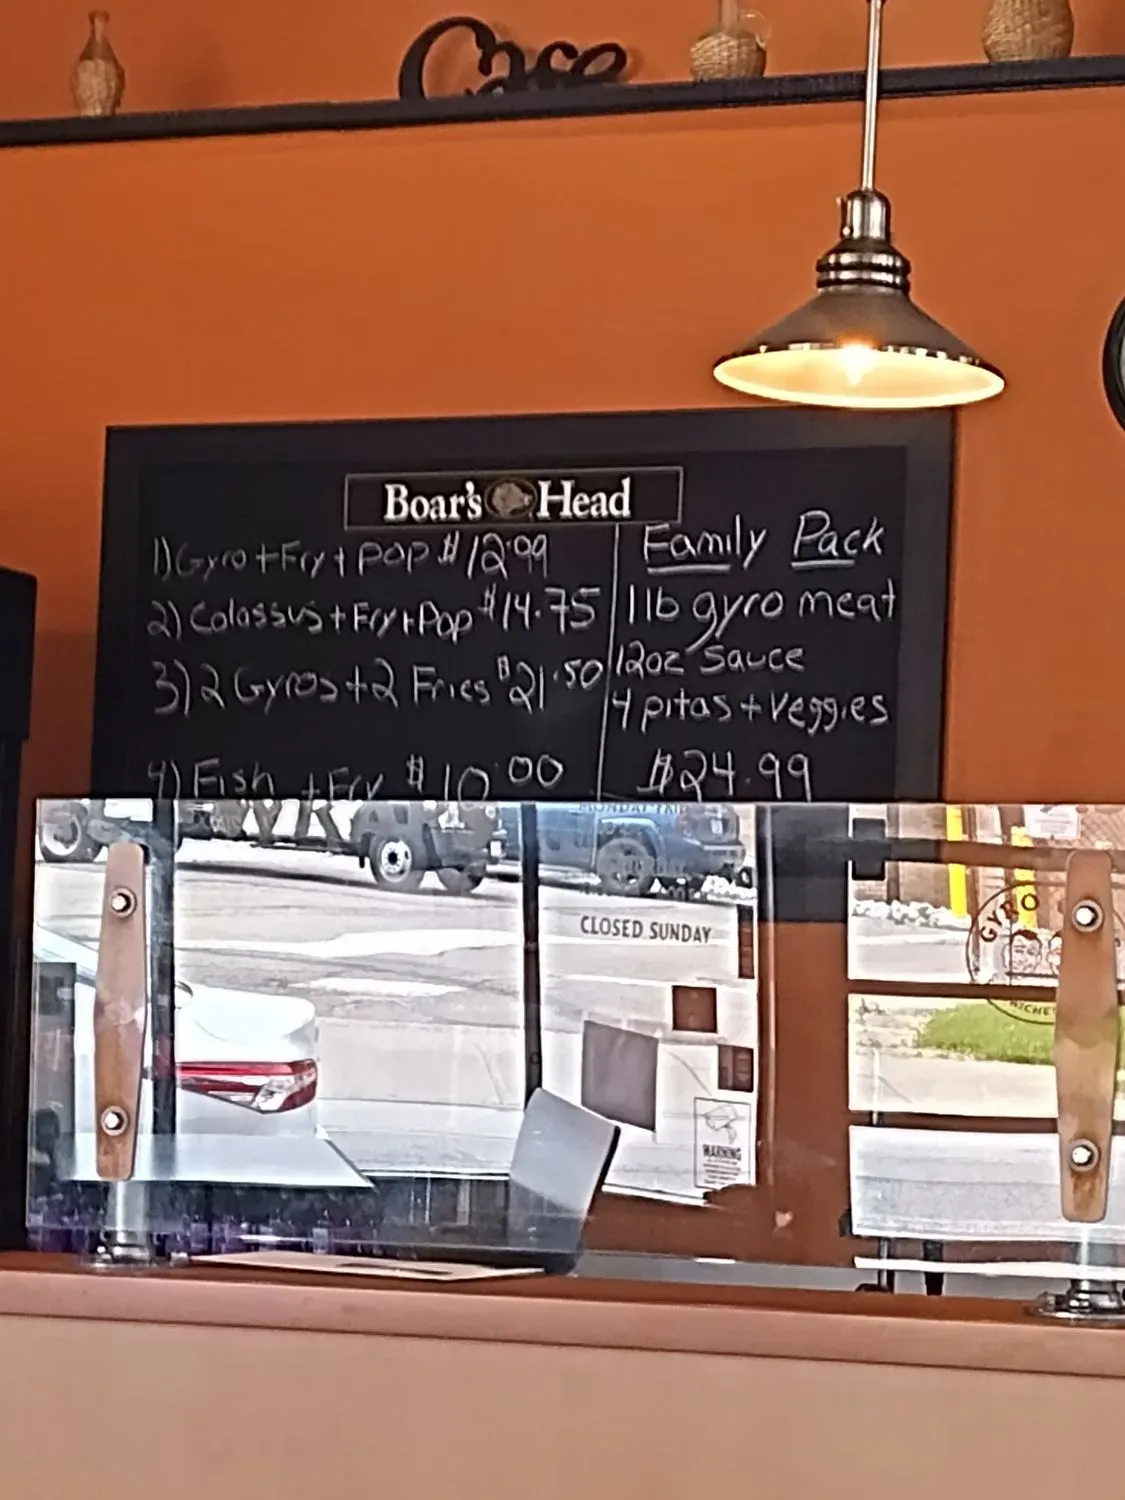 Cafe
Boar's Head
1) Gyro + Fry + POP $12.99
2) Colossus + Fry + Pop $14.75
3) 2 Gyros + 2 Fries $21.50
4) Fish + Fry $10.00
Family Pack
1lb gyro meat
12oz sauce
4 pitas + veggies
$24.99
CLOSED SUNDAY
WARNING
GYRO